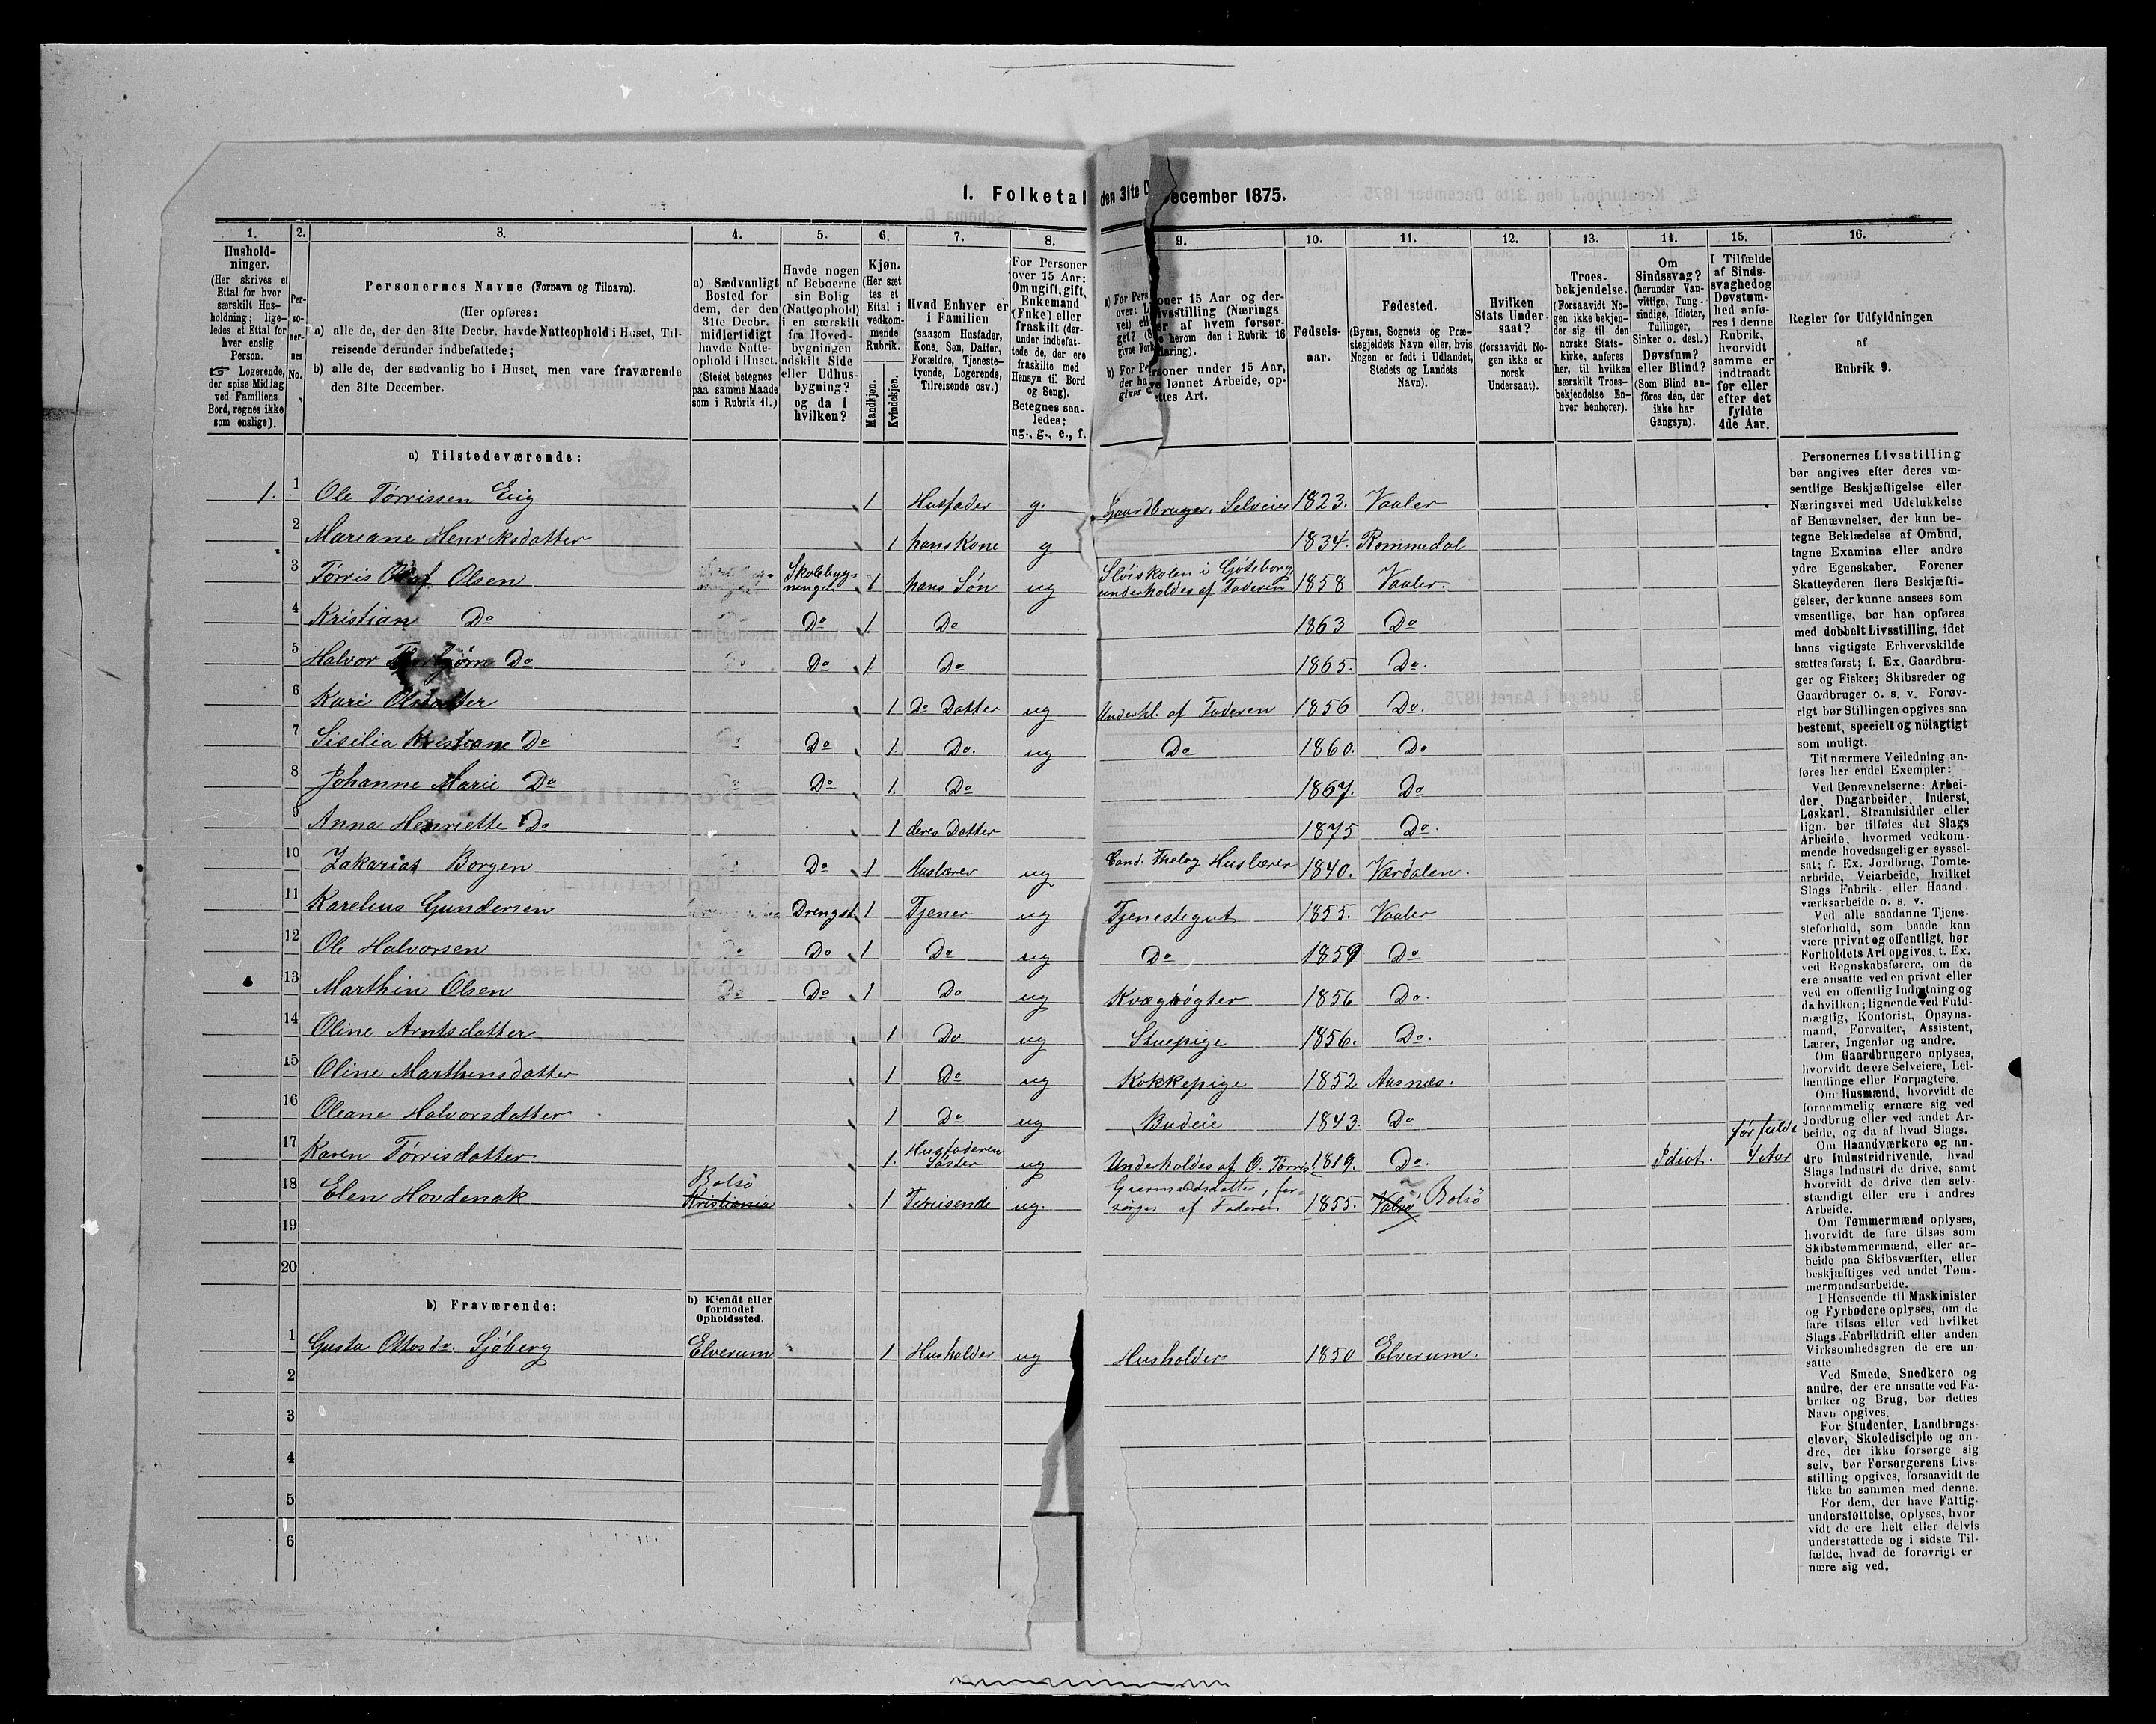 1. Folketal den 31te December 1875.
1. 2. 3. 4. 5. 6. 7. 8. 9. 10. 11. 12. 13. 14. 15. 16.
Hushold-
ninger.
(Her skrives et
Ettal for hver
særskilt Hus-
holdning; lige-
ledes et Ettal for
hver enslig
Person.
☞ Logerende,
der spise Middag
ved Familiens
Bord, regnes ikke
som enslige).
Per-
so-
ner-
nes
No.
Personernes Navne (Fornavn og Tilnavn).
(Her opføres:
a) alle de, der den 31te Decbr. havde Natteophold i Huset, Til-
reisende derunder indbefattede;
b) alle de, der sædvanlig bo i Huset, men vare fraværende
den 31te December.
a) Sædvanligt
Bosted for
dem, der den
31te Decbr.
midlertidigt
havde Natte-
ophold i Huset.
(Stedet betegnes
paa samme Maade
som i Rubrik 11.)
Havde nogen
af Beboerne
sin Bolig
(Natteophold)
i en særskilt
fra Hoved-
bygningen
adskilt Side
eller Udhus-
bygning?
og da i
hvilken?
Kjøn.
(Her sæt
tes et
Ettal i
vedkom-
mende
Rubrik.
Mandkjøn.
Kvindekjøn.
Hvad Enhver er
i Familien
(saasom Husfader,
Kone, Søn, Datter,
Forældre, Tjeneste-
tyende, Logerende,
Tilreisende osv.)
For Personer
over 15 Aar:
Om ugift, gift,
Enkemand
(Enke) eller
fraskilt (der-
under indbefat-
tede de, der ere
fraskilte med
Hensyn til Bord
og Seng).
Betegnes saa-
ledes:
ug., g., e., f.
Fødsels-
aar.
Fødested.
(Byens, Sognets og Præ-
stegjeldets Navn eller, hvis
Nogen er født i Udlandet,
Stedets og Landets
Navn).
Hvilken
Stats Under-
saat?
(forsaavidt No-
gen ikke er
norsk
Undersaat).
Troes-
bekjendelse.
(Forsaavidt No-
gen ikke bekjen-
der sig til den
norske Stats-
kirke, anføres
her, til hvilken
særskilt Troes-
bekjendelse En-
hver henhører).
Om
Sindssvag?
(herunder Van-
vittige, Tung-
sindige, Idioter,
Tullinger,
Sinker o. desl.)
Døvstum?
eller Blind?
(Som Blind an-
føres den, der
ikke har
Gangsyn).
I Tilfælde
af Sinds-
svaghed og
Døvstum-
hed anfø-
res i denne
Rubrik,
hvorvidt
samme er
indtraadt
før eller
efter det
fyldte
4de Aar.
Regler for Udfyldningen
af
Rubrik 9.
a) Tilstedeværende:
1. 1 Ole Tørrissen Eiig 1 Husfader g. Gaardbruger. Selveier 1823. Vaaler
2 Mariane Henriksdatter 1 hans Kone g 1834. Rommedal
3 Tørris Olaf Olsen Skolebyg-
ningen 1 hans Søn ug Sløiskolen i Gøteborg,
underholdes af Faderen 1858 Vaaler.
4 Kristian Do Do 1 Do 1863 Do
5 Halvor Do Do 1 Do 1865. Do.
6 Kari Olsdatter 1 Do Datter ug Underh. af Faderen 1856 Do.
7 Sisilia Kristiane Do Do 1. Do. ug Do 1860. Do
8 Johanne Marie Do Do 1. Do 1867. Do
9 Anna Henriette Do 1 deres Datter 1875 Do.
10 Zakarias Borgen Do 1 Huslærer ug Cand. Theolog Huslærer 1840. Værdalen.
11 Karelius Gundersen Drengst. 1 Tjener ug Tjenestegut 1855. Vaaler
12 Ole Halvorsen Do Do 1 Do ug Do 1859 Do
13 Marthin Olsen Do Do 1 Do ug Kvægrøgter 1856 Do.
14 Oline Arntsdatter 1 Do ug Stuepige 1856. Do.
15 Oline Marthinsdatter 1 Do ug Kokkepige 1852 Aasnæs.
16 Oleane Halvorsdatter 1 Do ug Budeie 1843. Do
17 Karen Tørrisdatter 1. Husfaderen
Søster ug Underholdes af O. Tørris. 1819. Do. Idiot. før fulde
4 Aar
18 Elen Hovdenak Bolsø
Kristiania 1 Tilreisende ug. Gaarmandsdatter, for-
sørges af Faderen 1855. Valsø Bolsø
19
20
b) Fraværende:
b) Kjendt eller
formodet
Opholdssted.
1 Gusta Ottosdr. Sjøberg Elverum 1 Husholder ug Husholder 1850 Elverum.
2
3
4
5
6
Personernes Livsstilling
bør angives efter deres væ-
sentlige Beskjæftigelse eller
Næringsvei med Udelukkelse
af Benævnelser, der kun be-
tegne Beklædelse af Ombud,
tagne Examina eller andre
ydre Egenskaber. Forener
Skatteyderen flere Beskjæfti-
gelser, der kunne ansees som
væsentlige, bør han opføres
med dobbelt Livsstilling, idet
hans vigtigste Erhvervskilde
sættes først; f. Ex. Gaardbru-
ger og Fisker; Skibsreder og
Gaardbruger o. s. v. Forøv-
rigt bør Stillingen opgives saa
bestemt, specielt og nöiagtigt
som muligt.
Til nærmere Veiledning an-
føres her endel Exempler:
Ved Benævnelserne: Arbei-
der, Dagarbeider, Inderst,
Løskarl, Strandsidder eller
lign. bør tilføies det Slags
Arbeide, hvormed vedkom-
mende hovedsagelig er syssel-
sat; f. Ex. Jordbrug, Tomte-
arbeide, Veiarbeide, hvilket
Slags Fabrik- eller Haand-
værksarbeide o. s. v.
Ved alle saadanne Tjene-
steforhold, som baade kan
være privat og offentligt, bør
Forholdets Art opgives, t. Ex.
ved Regnskabsførere, om de
ere ansatte ved en privat eller
ved en offentlig Indretning og
da hvilken; lignende ved Fuld-
mægtig, Kontorist, Opsyns-
mand, Forvalter, Assistent,
Lærer, Ingeniør og andre.
Om Gaardbrugere oplyses,
hvorvidt de ere Selveiere, Lei-
lændinge eller Forpagtere.
Om Husmænd, hvorvidt de
fornemmelig ernære sig ved
Jordbrug eller ved andet Ar-
beide, og da af hvad Slags.
Om Haandværkere og an-
dre Industridrivende, hvad
Slags Industri de drive, samt
hvorvidt de drive den selv-
stændigt eller ere i andres
Arbeide.
Om Tømmermænd oplyses,
hvorvidt de fare tilsøs som
Skibstømmermænd, eller ar-
beide paa Skibsværfter, eller
beskjæftiges ved andet Tøm-
mermandsarbeide.
I Henseende til Maskinister
og Fyrbødere oplyses, om de
fare tilsøs eller ved hvilket
Slags Fabrikdrift eller anden
Virksomhedsgren de ere an-
satte.
Ved Smede, Snedkere og
andre, der ere ansatte ved Fa-
briker og Brug, bør dettes
Navn opgives.
For Studenter, Landbrugs-
elever, Skoledisciple og an-
dre, der ikke forsørge sig
selv, bør Forsørgerens Livs-
stilling opgives, forsaavidt de
ikke bo sammen med denne.
For dem, der have Fattig-
understøttelse, oplyses, hvor
vidt de ere helt eller delvis
understøttede og i sidste Til-
fælde, hvad de forøvrigt er
nære sig ved.